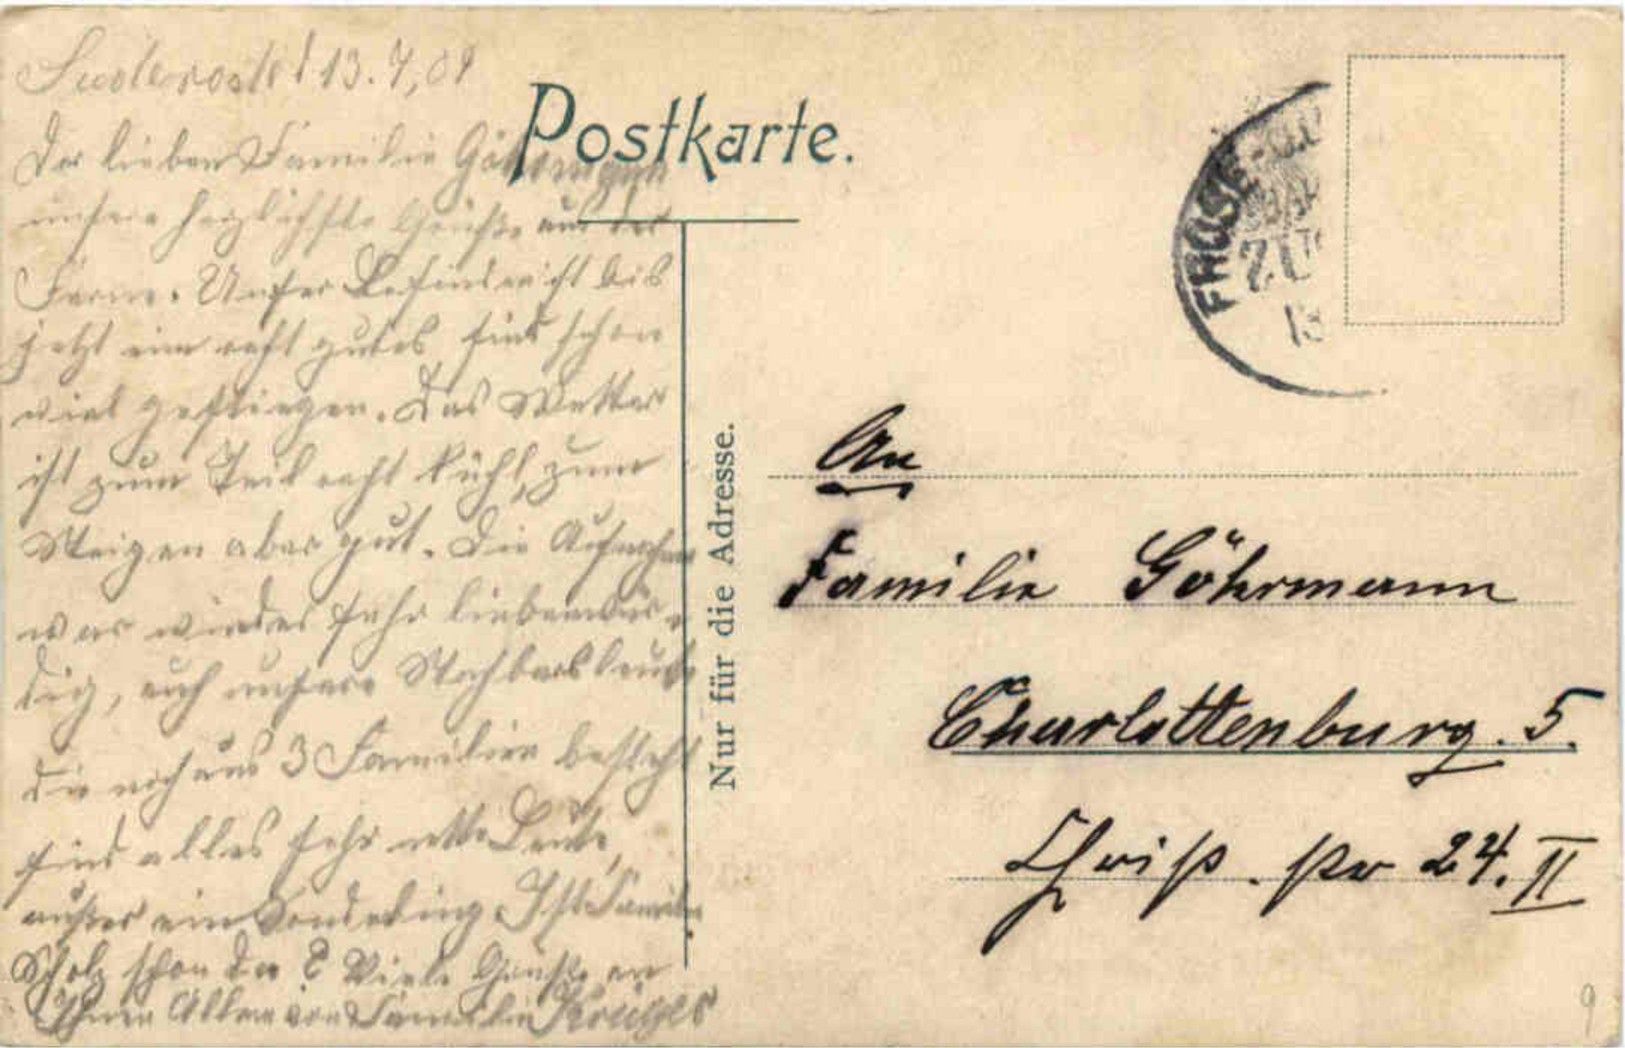 Suderode 13.7,09
Der lieben Familie Göhrmann
unsere herzlichste Grüße aus der
Ferne. Unser Befinden ist bis
jetzt ein recht gutes, sind schon
viel gestiegen. Das Wetter
ist zum Teil recht kühl, zum
Steigen aber gut. Die Aufnahme
war wieder sehr liebenswür-
dig, auch unsere Nachbarsleute
die noch aus 3 Familien besteht
sind alles sehr nette Leute,
außer ein Sonderling. Ist Familie
Scholz schon da? Viele Grüße an
Ihnen Allen von Familie Krüger
Postkarte.
Nur für die Adresse.
FROSE-QU
ZUG
13
An
Familie Göhrmann
Charlottenburg. 5.
Str 24. II
9